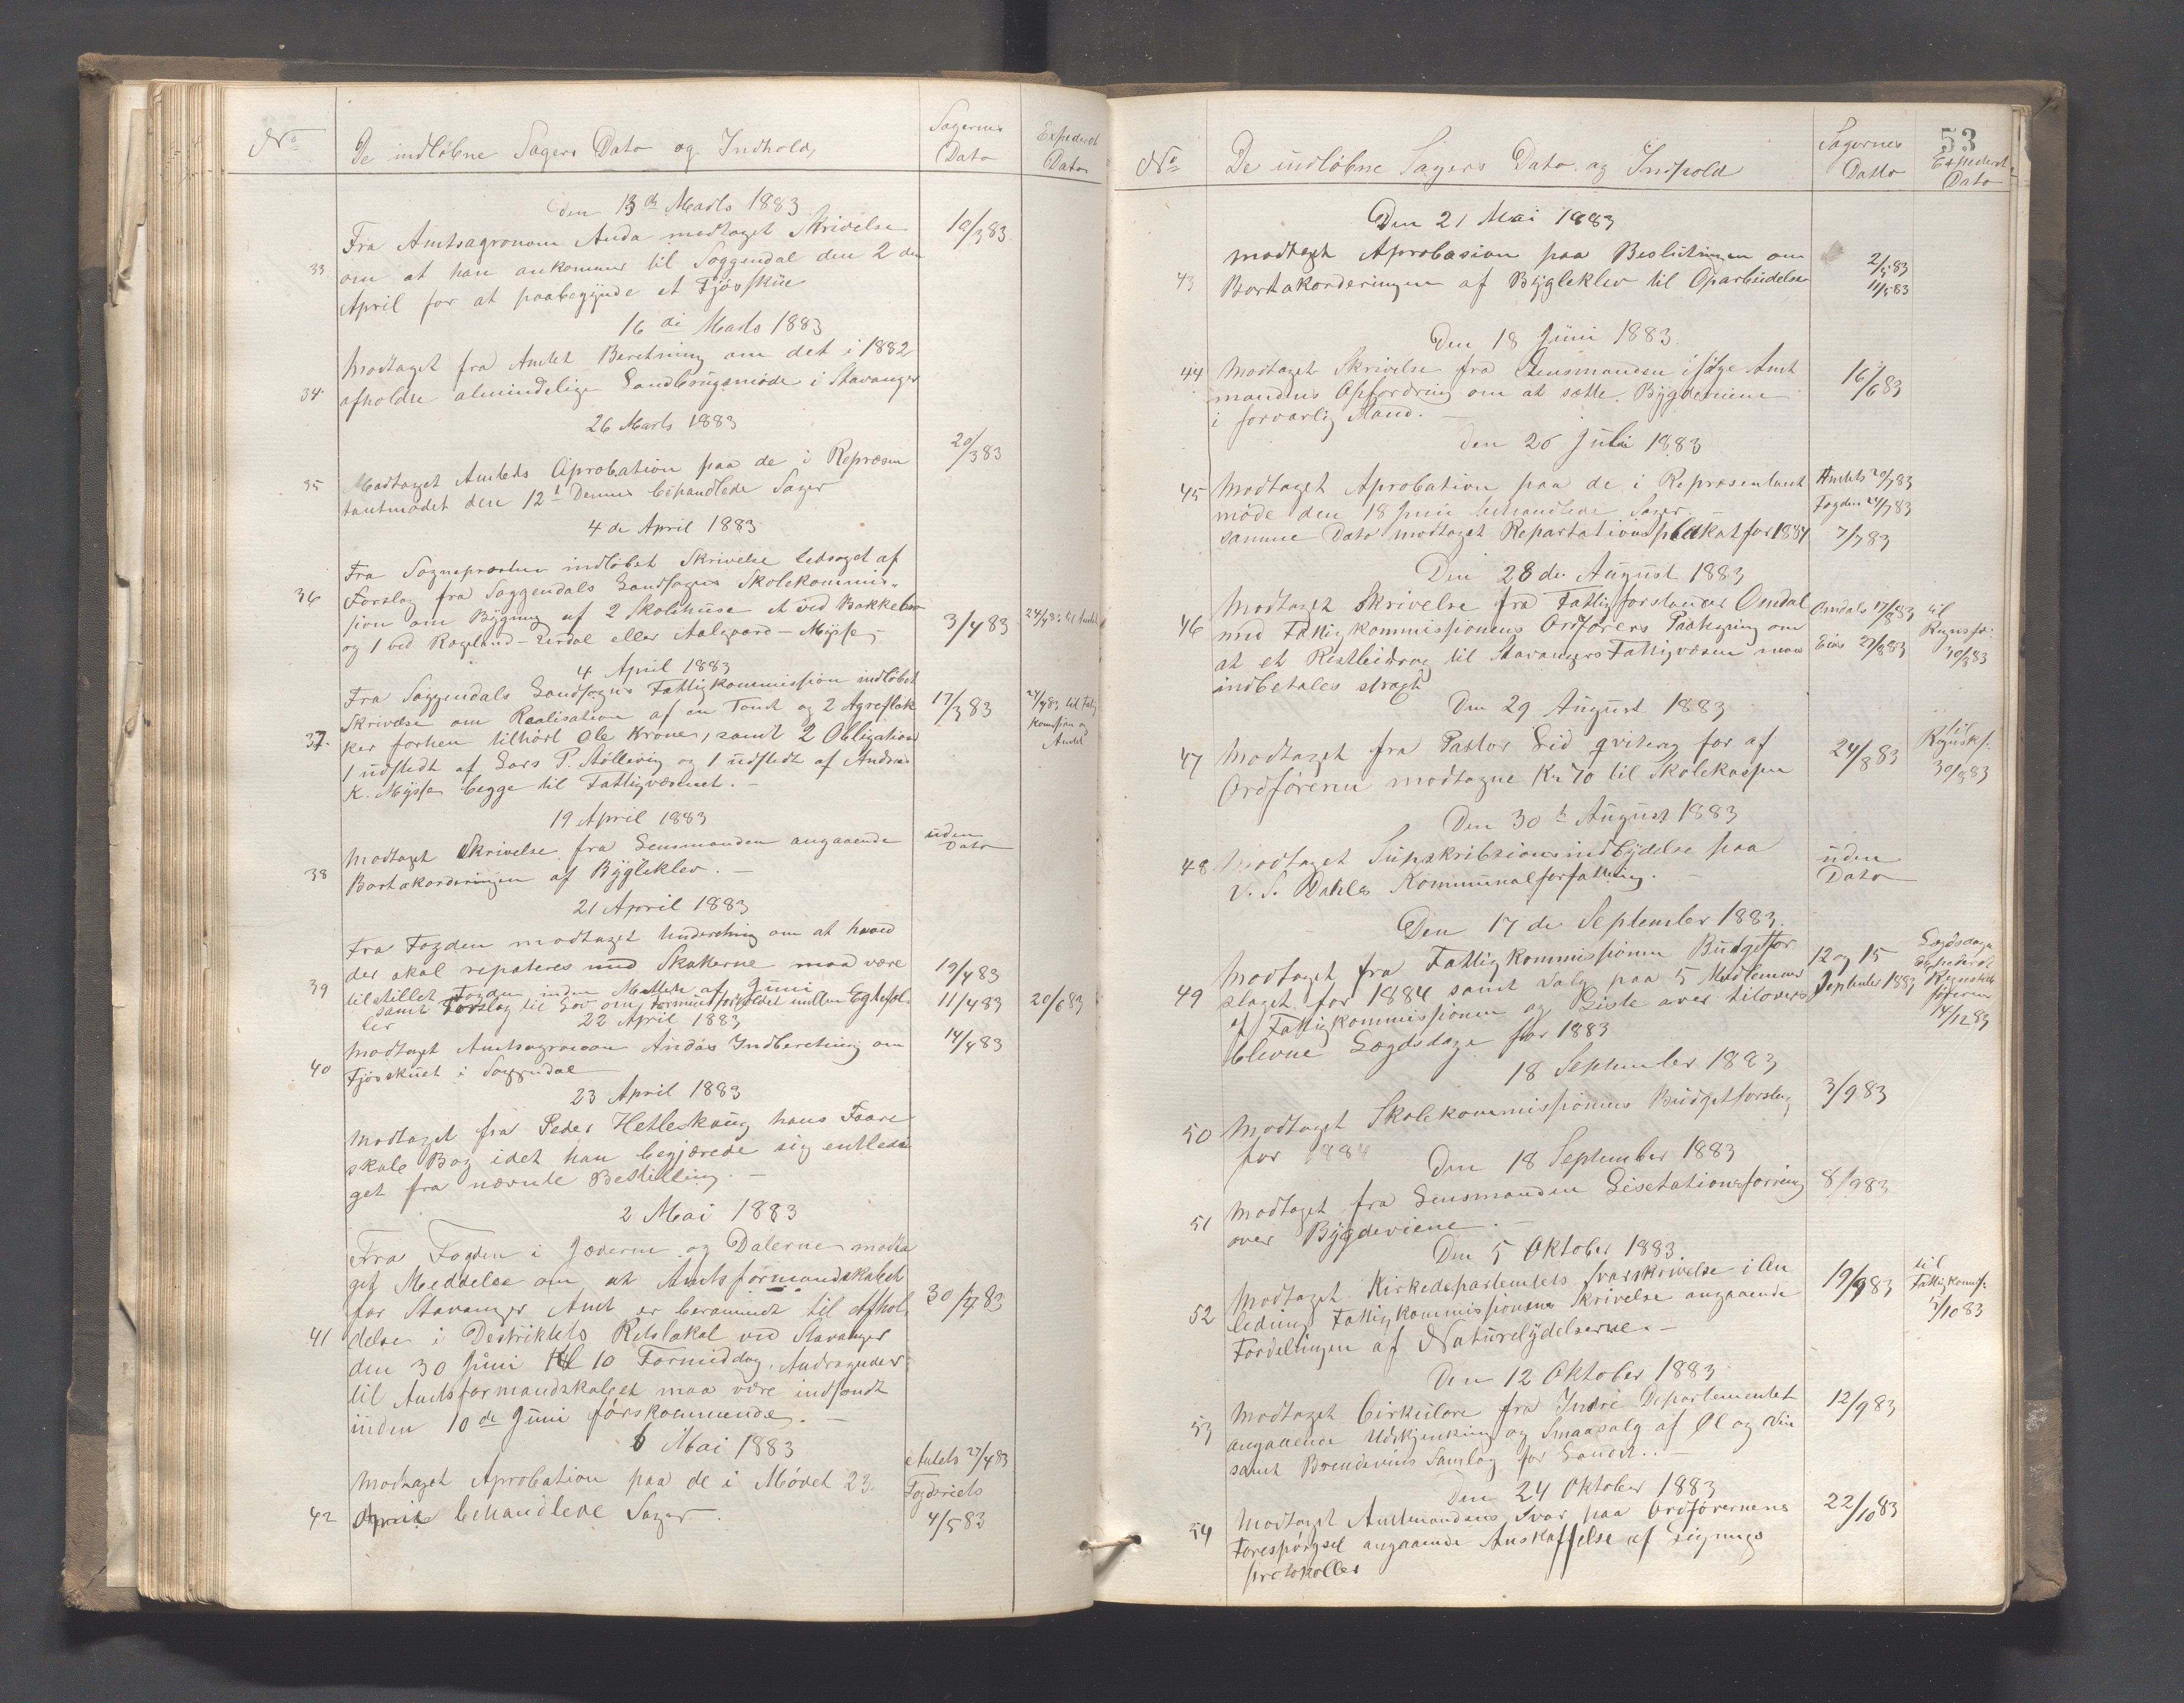 No
De indløbne Sagers Dato og Indhold
Sagernes Dato
Expederet Dato
Den 13de Marts 1883
33 Fra Amtsagronom Anda modtaget Skrivelse 10/3 83
om at han ankommer til Soggendal den 2den
April for at paabegynde et Fjøsskue
16de Marts 1883
Modtaget fra Amtet Beretning om det i 1882
34 afholdte almindelige Landbrugsmøde i Stavanger
26 Marts 1883
Modtaget Amtets Aprobation paa de i Repræsen 20/3 83
35 tantmødet den 12t Dennes behandlede Sager
4de April 1883
Fra Sognepræsten indløbet Skrivelse ledsaget af
36 Forslag fra Soggendals Landsogns Skolekommis-
sion om Bygning af 2 Skolehuse et ved Bakke 3/4 83
og 1 ved Rægeland - Urdal eller Aalgaard - Mysse -
4 April 1883
Fra Soggendals Landsogns Fattigkommission indløbet
Skrivelse om Realisation af en Tomt og 2 Agreflæk 17/3 83 24/4 83 til Fatig
37. ker forhen tilhørt Ole Krone, samt 2 Obligation komssion og Amtet
1 udstedt af Lars P. Støllevig og 1 udstedt af Andreas
K. Mysse begge til Fattigvæsenet. -
19 April 1883
Modtaget Skrivelse fra Lensmanden angaaende uden Dato
38 Bortakorderingen af Bygleklev. -
21 April 1883
Fra Fogden modtaget Underetning om at hvad
der skal repateres med Skaterne maa være 19/4 83
39 tilstillet Fogden inden Midten af Juni
samt Forslag til Lov om Formuesforholdet mellem Egtefol- 11/4 83 20/6 83
ler
22 April 1883
Modtaget Amtsagronom Andas Indberetning om 14/4 83
40 Fjøsskuet i Soggendal
23 April 1883
Modtaget fra Peder Hetleskoug hans Faare
skabs Bog idet han begjærede sig entledi
get fra nævnte Bestilling. -
2 Mai 1883
Fra Fogden i Jæderen og Dalerne modta
get Meddelse om at Amtsformandskabet
for Stavanger Amt er berammet til Afhol 30/4 83
41 delse i Destriktets Retslokal ved Stavanger
den 30 Juni Kl 10 Formiddag. Andragender
til Amtsformandskabet maa være indsendt
inden 10de Juni førskommende. -
6 Mai 1883
Modtaget Aprobation paa de i Mødet 23 Amtets 27/4 83
42 April behandlede Sager. Fogderiets 4/5 83
53
No
De indløbne Sagers Dato og Indhold
Sagernes Datto
Expederet Dato
Den 21 Mai 1883
modtaget Aprobasion paa Beslutningen om 2/5 83
43 Bortakorderingen af Bygleklev til Oparbeidelse 11/5 83
Den 18 Juni 1883
44 Modtaget Skrivelse fra Lensmanden ifølge Amt 16/6 83
mandens Opfordring om at sætte Bygdeveiene
i forvarlig Stand. -
den 26 Juli 1883
45 Modtaget Aprobation paa de i Repræsentant Amtets 20/7 83
møde den 18 Juni behandlede Sager. - Fogden 24/7 83
samme Dato modtaget Repartationsplakat for 1884 7/7 83
Den 28de August 1883
Modtaget Skrivelse fra Fattigforstander Omdal Omdals 17/8 83 til
46 med Fattigkommissionens Ordførers Paategning om Regnsf.
at et Restbidrag til Stavangers Fattigvæsen maa Eies 27/8 83 30/8 83
indbetales stragt
Den 29 August 1883
47 Modtaget fra Pastor Eid qvitering for af 24/8 83 til Regnskf.
Ordføreren modtagne Kr 70 til Skolekassen 30/8 83
Den 30t August 1883
48 Modtaget Supskribsionsindbydelse paa uden
V. S. Dahls Kommunalforfatning. - Dato
Den 17de September 1883.
Modtaget fra Fattigkommissionen Budgetfor 12 og 15 Lægdsdage
49 slaget for 1884 samt Valg paa 5 Medlemmer September 1883 Expederet
af Fattigkommissionen og Liste over tilovers Regnskabsføreren
blevne Lægdsdage for 1883 14/12 83
18 September 1883
50 Modtaget Skolekommissionens Budgetforslag 3/9 83
for 1884
Den 18 September 1883
51 Modtaget fra Lensmanden Lisetationsforretning 8/9 83
over Bygdeveiene. -
Den 5 Oktober 1883.
Modtaget Kirkedepartemtets Svarskrivelse i An 19/9 83 til
52 ledning Fattigkommissionens Skrivelse angaaende Fattigkomis.
Fordelingen af Naturelydelserne. - 5/10 83
Den 12 Oktober 1883
53 Modtaget Cirkulære fra Indre Departementet 12/9 83
angaaende Udskjenkning og Smaasalg af Øl og Vin
samt Brendevins Samlag for Landet. -
Den 24 Oktober 1883
54 Modtaget Amtmandens Svar paa Ordførerens 22/10 83
Forespørgsel angaaende Anskaffelse af Lignings
protokoller